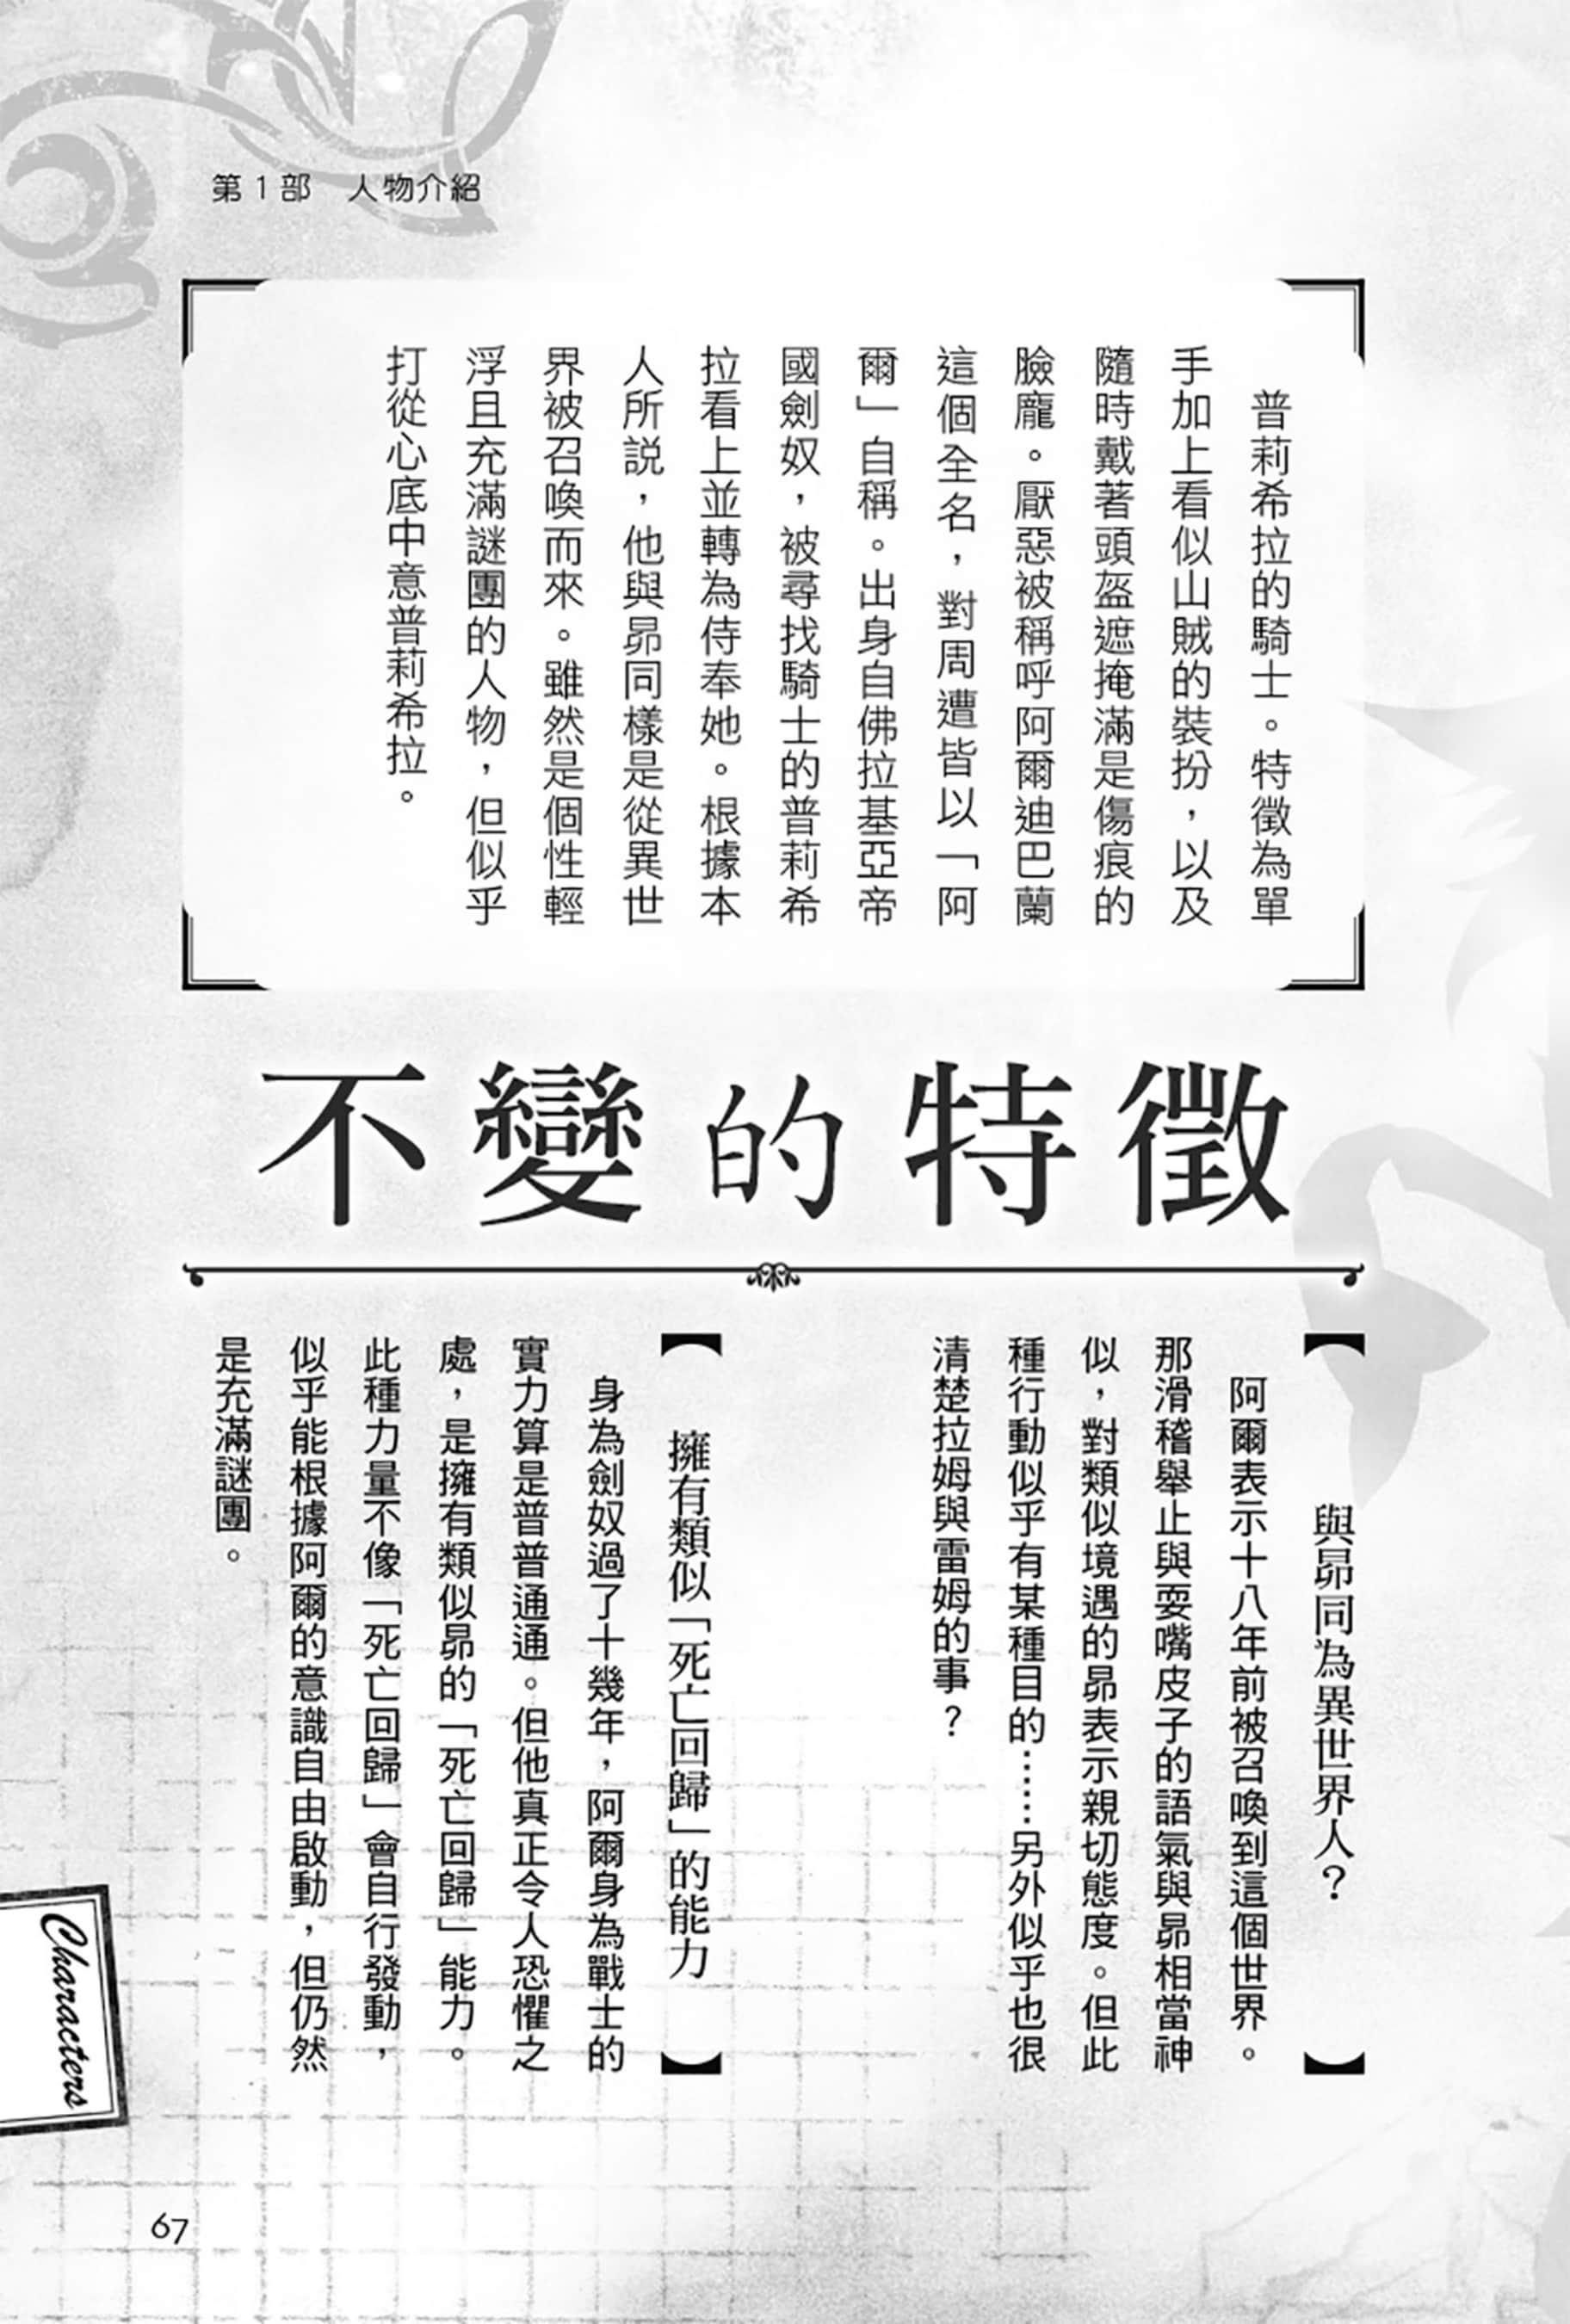 第1部　人物介紹
普莉希拉的騎士。特徵為單
手加上看似山賊的裝扮，以及
隨時戴著頭盔遮掩滿是傷痕的
臉龐。厭惡被稱呼阿爾迪巴蘭
這個全名，對周遭皆以「阿
爾」自稱。出身自佛拉基亞帝
國劍奴，被尋找騎士的普莉希
拉看上並轉為侍奉她。根據本
人所說，他與昴同樣是從異世
界被召喚而來。雖然是個性輕
浮且充滿謎團的人物，但似乎
打從心底中意普莉希拉。
不變的特徵
【與昴同為異世界人？】
阿爾表示十八年前被召喚到這個世界。
那滑稽舉止與耍嘴皮子的語氣與昴相當神
似，對類似境遇的昴表示親切態度。但此
種行動似乎有某種目的……另外似乎也很
清楚拉姆與雷姆的事？
【擁有類似「死亡回歸」的能力】
身為劍奴過了十幾年，阿爾身為戰士的
實力算是普普通通。但他真正令人恐懼之
處，是擁有類似昴的「死亡回歸」能力。
此種力量不像「死亡回歸」會自行發動，
似乎能根據阿爾的意識自由啟動，但仍然
是充滿謎團。
Characters
67